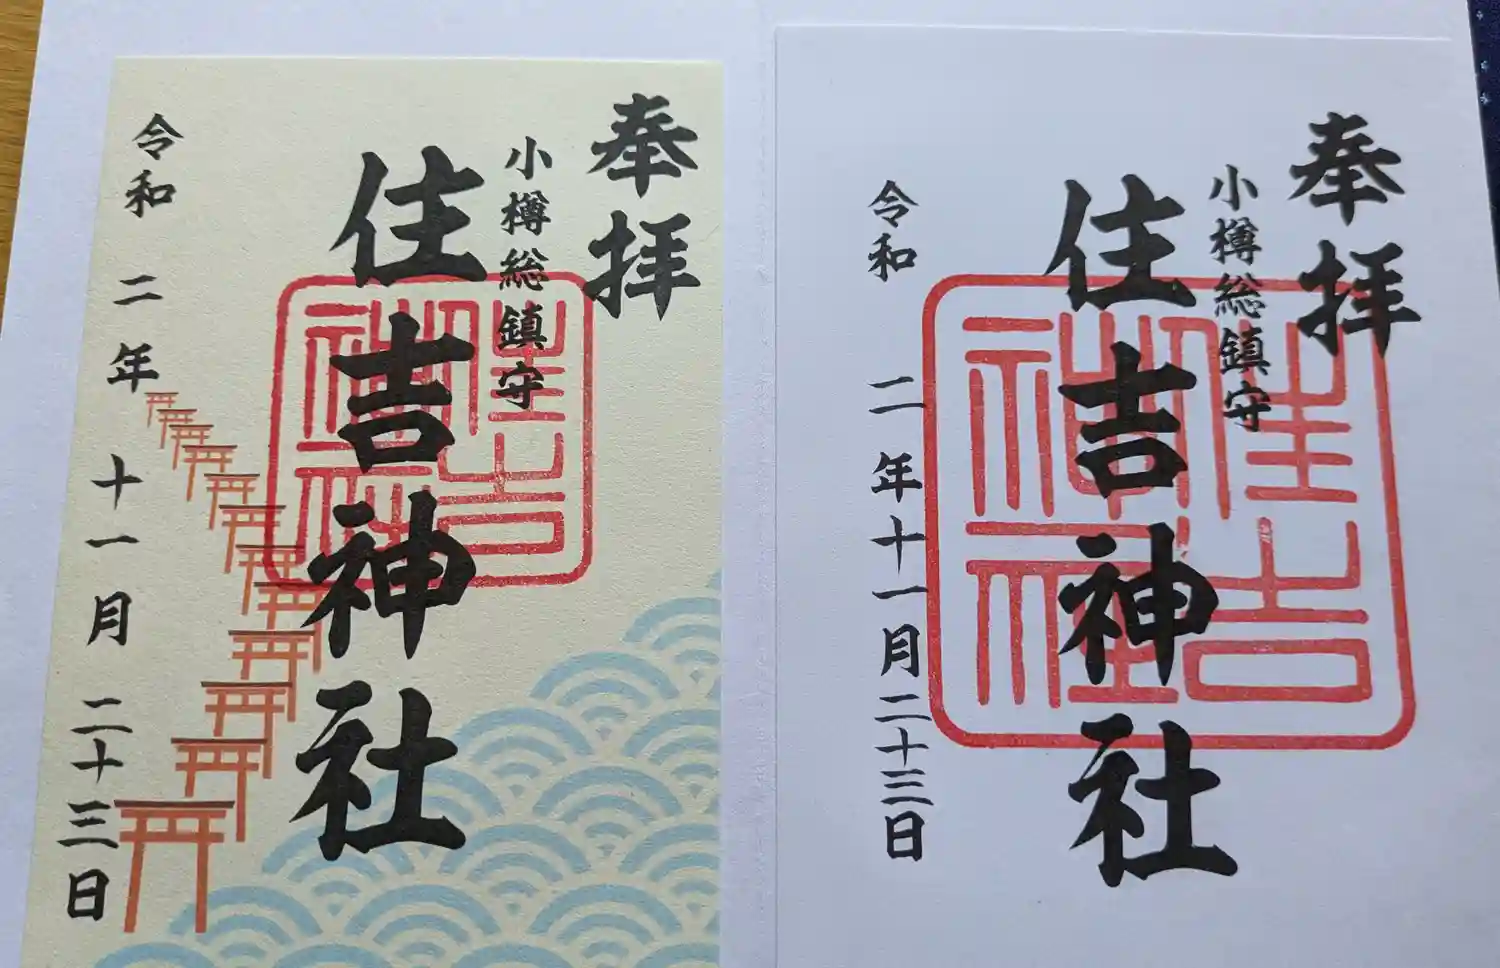 奉拝
小樽総鎮守
住吉神社
令和二年十一月二十三日
住吉神社
奉拝
小樽総鎮守
住吉神社
令和二年十一月二十三日
住吉神社